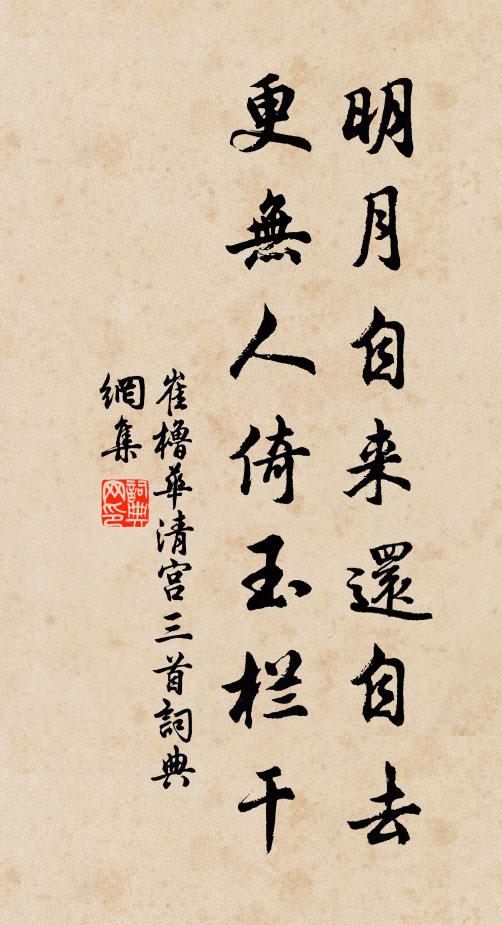 明月自来還自去
更無人倚玉栏干
崔櫓華清宫三首詞典
網集
詞典
网印